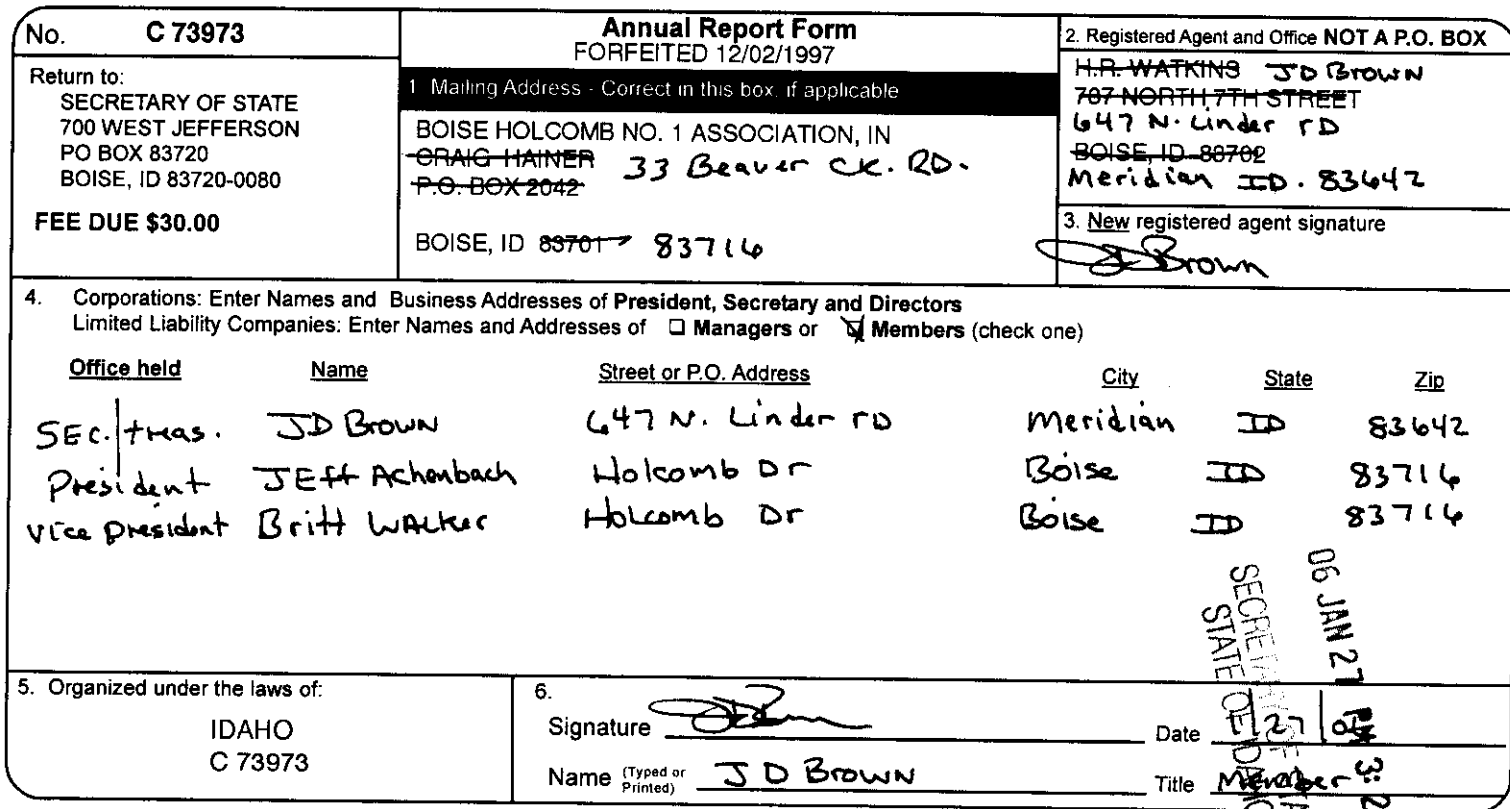 No. C 73973
Return to:
SECRETARY OF STATE
700 WEST JEFFERSON
PO BOX 83720
BOISE, ID 83720-0080
FEE DUE $30.00
Annual Report Form
FORFEITED 12/02/1997
1 Mailing Address - Correct in this box, if applicable
BOISE HOLCOMB NO. 1 ASSOCIATION, IN
CRAIG HAINER 33 Beaver CK. RD.
P.O. BOX 2042
BOISE, ID 83701 83716
2. Registered Agent and Office NOT A P.O. BOX
H.R. WATKINS JD Brown
707 NORTH 7TH STREET
647 N. Linder rD
BOISE, ID 83702
Meridian ID. 83642
3. New registered agent signature
JD Brown
4. Corporations: Enter Names and Business Addresses of President, Secretary and Directors
Limited Liability Companies: Enter Names and Addresses of ☐ Managers or ☑ Members (check one)
Office held Name Street or P.O. Address City State Zip
SEC. treas. JD Brown 647 N. Linder rD Meridian ID 83642
President JEff Achenbach Holcomb Dr Boise ID 83716
Vice president Britt WALker Holcomb Dr Boise ID 83716
06 JAN 27 PM 3:2
SECRETARY OF
STATE OF IDAHO
5. Organized under the laws of:
IDAHO
C 73973
6.
Signature JD Brown
Date 1/27/06
Name (Typed or Printed) J D Brown
Title Member